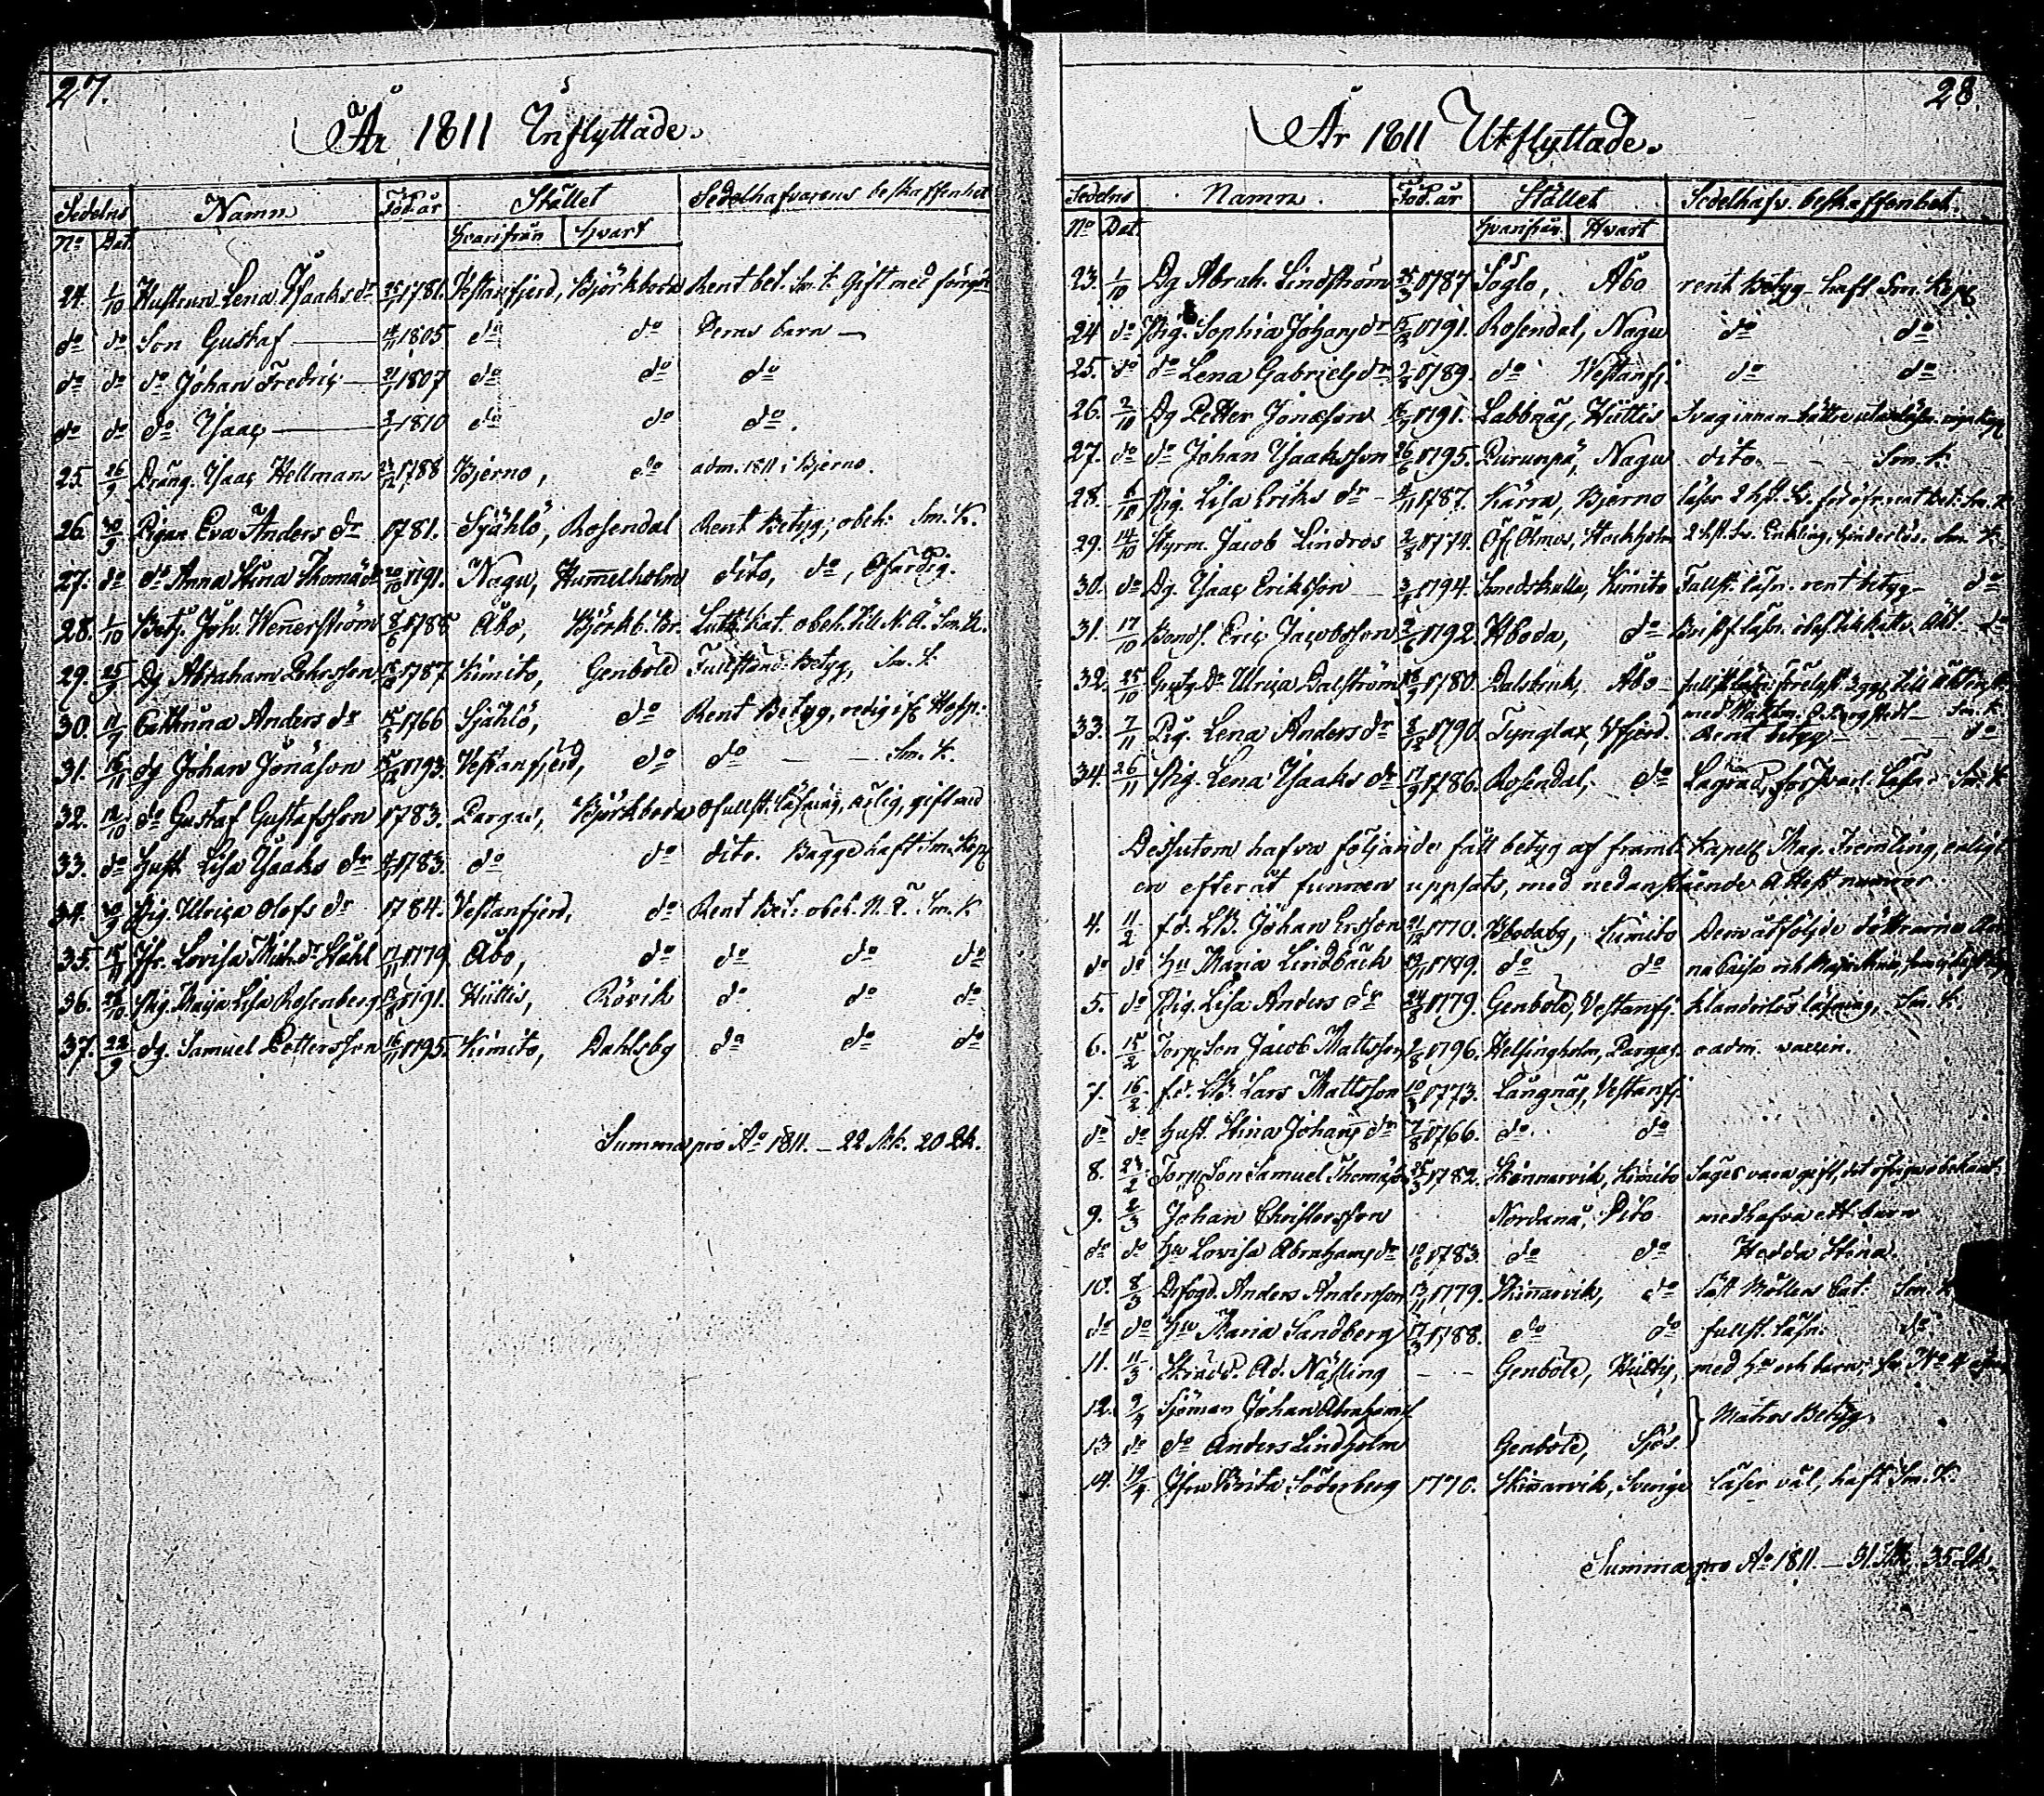 27.
År 1811 Inflyttade.
Sedelns Namn Föd. år Stället Sedelhafvarens beskaffenhet
No Dat. Hvarifrån Hvart
24. 1/10 Hustrun Lena Isaks dr 1781. Vestanfjerd, Björkboda Rent bet. Sm. k. Gift med
do do Son Gustaf 1805 do do Deras barn
do do do Johan Fredric 21/1 1807 do do do
do do do Isaac 1810 do do do.
25. 26/9 Dräng. Isaac Hellman 1788 Bjerno, do adm. 1811 i Bjerno.
26. 30/9 Pigan Eva Anders dr 1781. Sjählö, Rosendal Rent Betyg, obeh. Sm. K.
27. do do Anna Stina Thomæ dr 20/10 1791. Nagu, Hummelholm dito, do, Ofärdig.
28. 1/10 Betj. Joh. Wennerström 8/6 1788 Åbo, Björkb. Br. Luth. Kat. obeh. till N. Ä. Sm. K.
29. 25/9 Dg Abraham 1787 Kimito, Genböle Fullständ. Betyg, Sm. k.
30. Cathrina Anders dr 1766 Sjählö, do Rent Betyg, Hosp:
31. 15/11 dg Johan Jonason 1793. Vestanfjerd, do do Sm. k.
32. 12/10 do Gustaf Gustafsson 1783. Pargas, Björkboda ofullst. läsning, ärlig, gift med
33. do Hust. Lisa Isaks dr 1783. do do dito. Bägge haft Sm. Kopp
34. 30/9 Pig. Ulrica Olofs dr 1784. Vestanfjerd, do Rent Bet: obeh. N. Ä. Sm. K
35. 15/11 Jfr. Lovisa Mich. dr Ståhl 17/11 1779 Åbo, do do do do
36. 28/10 Pig. Maja Lisa Rosenberg 1791. Hiittis, Rövik do do do
37. 22/9 dg. Samuel Pettersson 16/11 1795. Kimito, Dahlsbg do do do
Summa pro Ao 1811. – 22 Mk. 20 Qk.
28.
År 1811 Utflyttade.
Sedelns Namn. Föd. år Stället Sedelhafv. beskaffenhet.
No Dat. Hvarifrån Hvart
23. 1/10 Dg Abrah. Lindström 1787 Söglo, Åbo rent Betyg haft Sm. Kopp
24 do Pig. Sophia Johans dr 1791. Rosendal, Nagu do do
25. do do Lena Gabriels dr 2/8 1789. do Westanfj. do do
26. 2/10 Dg Petter Jonasson 1791. Labbnäs, Hiittis Svag innan
27. do do Johan Isaksson 26/6 1795. Purunpä, Nagu dito Sm. k.
28. 5/10 Pig. Lisa Eriks dr 1787. Kärra, Bjerno läser 2 Sm. k
29. 14/10 Styrm. Jacob Lindros 2/8 1774. Ölmos, Stockholm Enkling, hinderlös. Sm. K.
30. do Dg. Isaac Eriksson 1794. Smedskulla, Kimito Fullst. läsn. rent betyg do
31. 17/10 Bonds. Eric Jacobsson 1792. Hboda, do läsn. Äkt. do
32. 25/10 Ulrica Dalström 1780. Dalsbruk, Åbo fullst. läsn. till
med Sm. k.
33. 7/11 Pig. Lena Anders dr 1790. Tynglax, Vfjerd. Rent betyg do
34. 26/11 Pig. Lena Isaks dr 17/9 1786. Rosendal, do försvarl. läsn. Sm. k.
Dessutom hafva följande fått betyg af framl. Kapell. Mag. Fremling, enligt
en efteråt funnen uppsats, med nedanstående Attest nummer.
4. 11/2 f.d. LB. Johan Ersson 21/12 1770. Hbodabg, Kimito Dem åtfölje döttrarne
do do Hu Maria Lindbäck 1789. do do na Caisa och Maja Stina,
5. do Pig. Lisa Anders dr 24/8 1779. Genböle, Vestanfj. klanderlös läsning, Sm. k.
6. 15/2 Torp. Son Jacob Mattsson 1796. Helsingholm, Pargas oadm.
7. 16/2 f.d. LB. Lars Mattsson 10/3 1773. Långnäs, Vestanfj.
do do Hust. Stina Johans dr 7/8 1766. do do
8. 23/2 Torp. Son Samuel 25/3 1782. Skinnarvik, Kimito Säges vara gift, det öfriga obekant.
9. 2/3 Johan Christersson Nordanå, Dito medhafva ett barn
do do Hu Lovisa Abrahams dr 1783. do do Hedda Stina.
10. 8/3 Anders Andersson 13/11 1779. Skinnarvik, do läst Möllers Cat: Sm. k
do do Hu Maria Sandberg 17/3 1788. do do fullst. läsn. do
11. 11/3 Skrädd. Ad. Näsling Genböle, Hiittis, med Hu och barn,
12. Sjöman Johan Abrahams. } Matros Betyg.
13 do do Anders Lindholm Genböle, Sjös.
14. 19/4 Jfru Brita Söderberg 1770. Skinnarvik, Sverige läser väl, haft Sm. K.
Summa pro Ao 1811. – 31. Mk. 35 Qk.